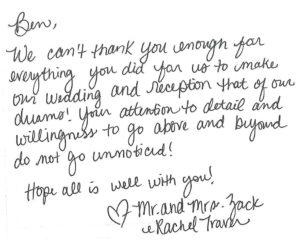 Ben,
We can't thank you enough for
everything you did for us to make
our wedding and reception that of our
dreams! Your attention to detail and
willingness to go above and beyond
do not go unnoticed!
Hope all is well with you!
♡ Mr. and Mrs. Zack
& Rachel